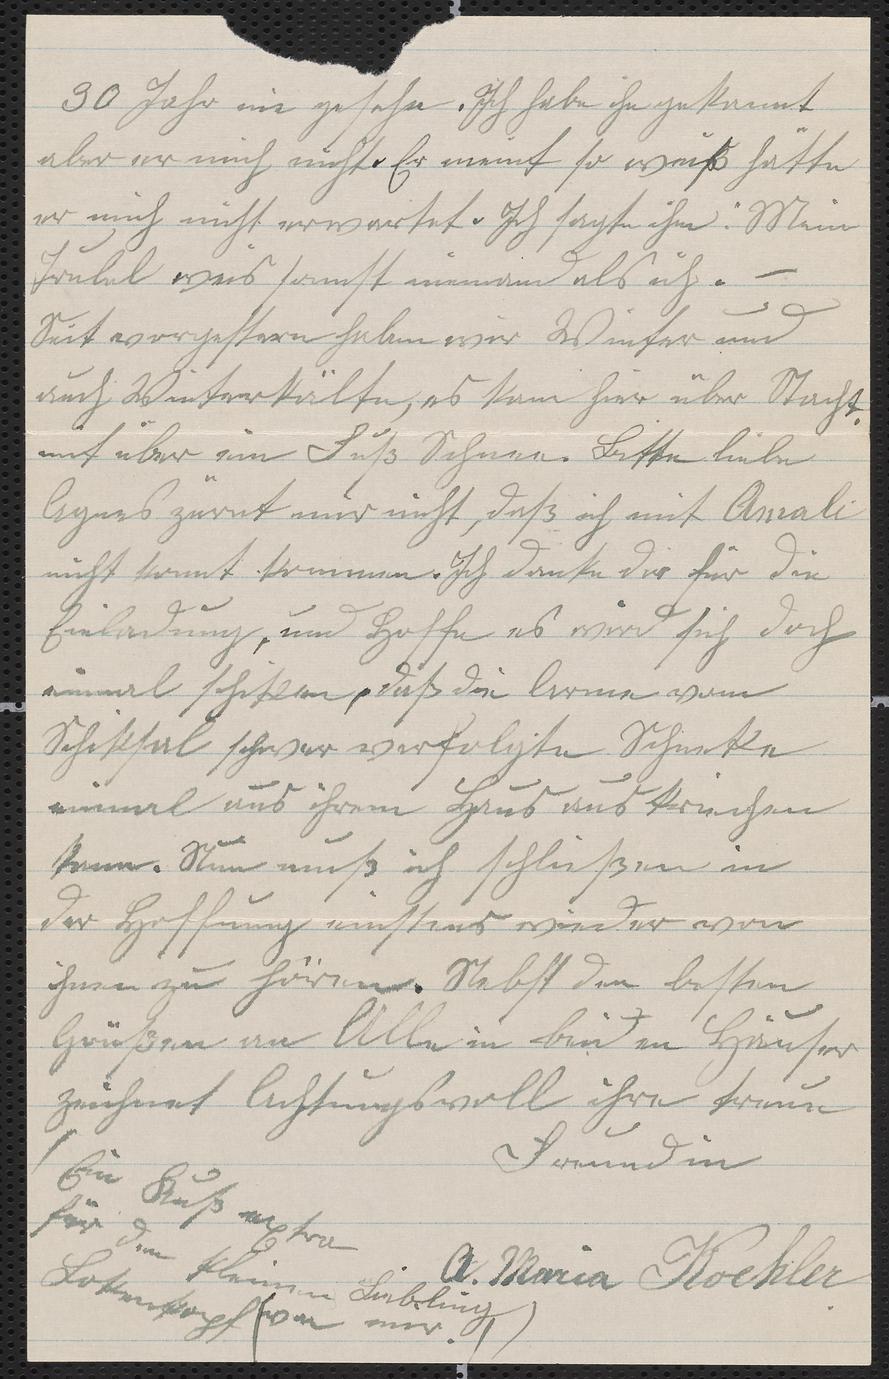 30 Jahr nie gesehn. Ich habe ihn gekannt
aber er mich nicht. Er meint so weiß hätte
er mich nicht erwartet. Ich sagte ihm: Mein
weis sonnst niemand als ich. —
Seit vorgestern haben wir Winter und
auch Winterkälte, es kam hier über Nacht
mit über ein Fuß Schnee. Bitte liebe
Agnes zürnt mir nicht, daß ich mit Amali
nicht konnt kommen. Ich danke dir für die
Einladung, und Hoffe es wird sich doch
einmal schikken, daß die Arme vom
Schiksal schwer verfolgte Schneke
einmal aus ihrem Haus auskriechen
kann. Nun muß ich schließen in
der Hoffnung einstens wieder von
ihnen zu hören. Nebst den besten
Grüßen an Alle in beiden Häuser
zeichnet Achtungsvoll ihre treue
Freundin
A. Maria Koehler
(Ein Kuß extra
für den kleinen Liebling
Lokenkopf (von mir.))